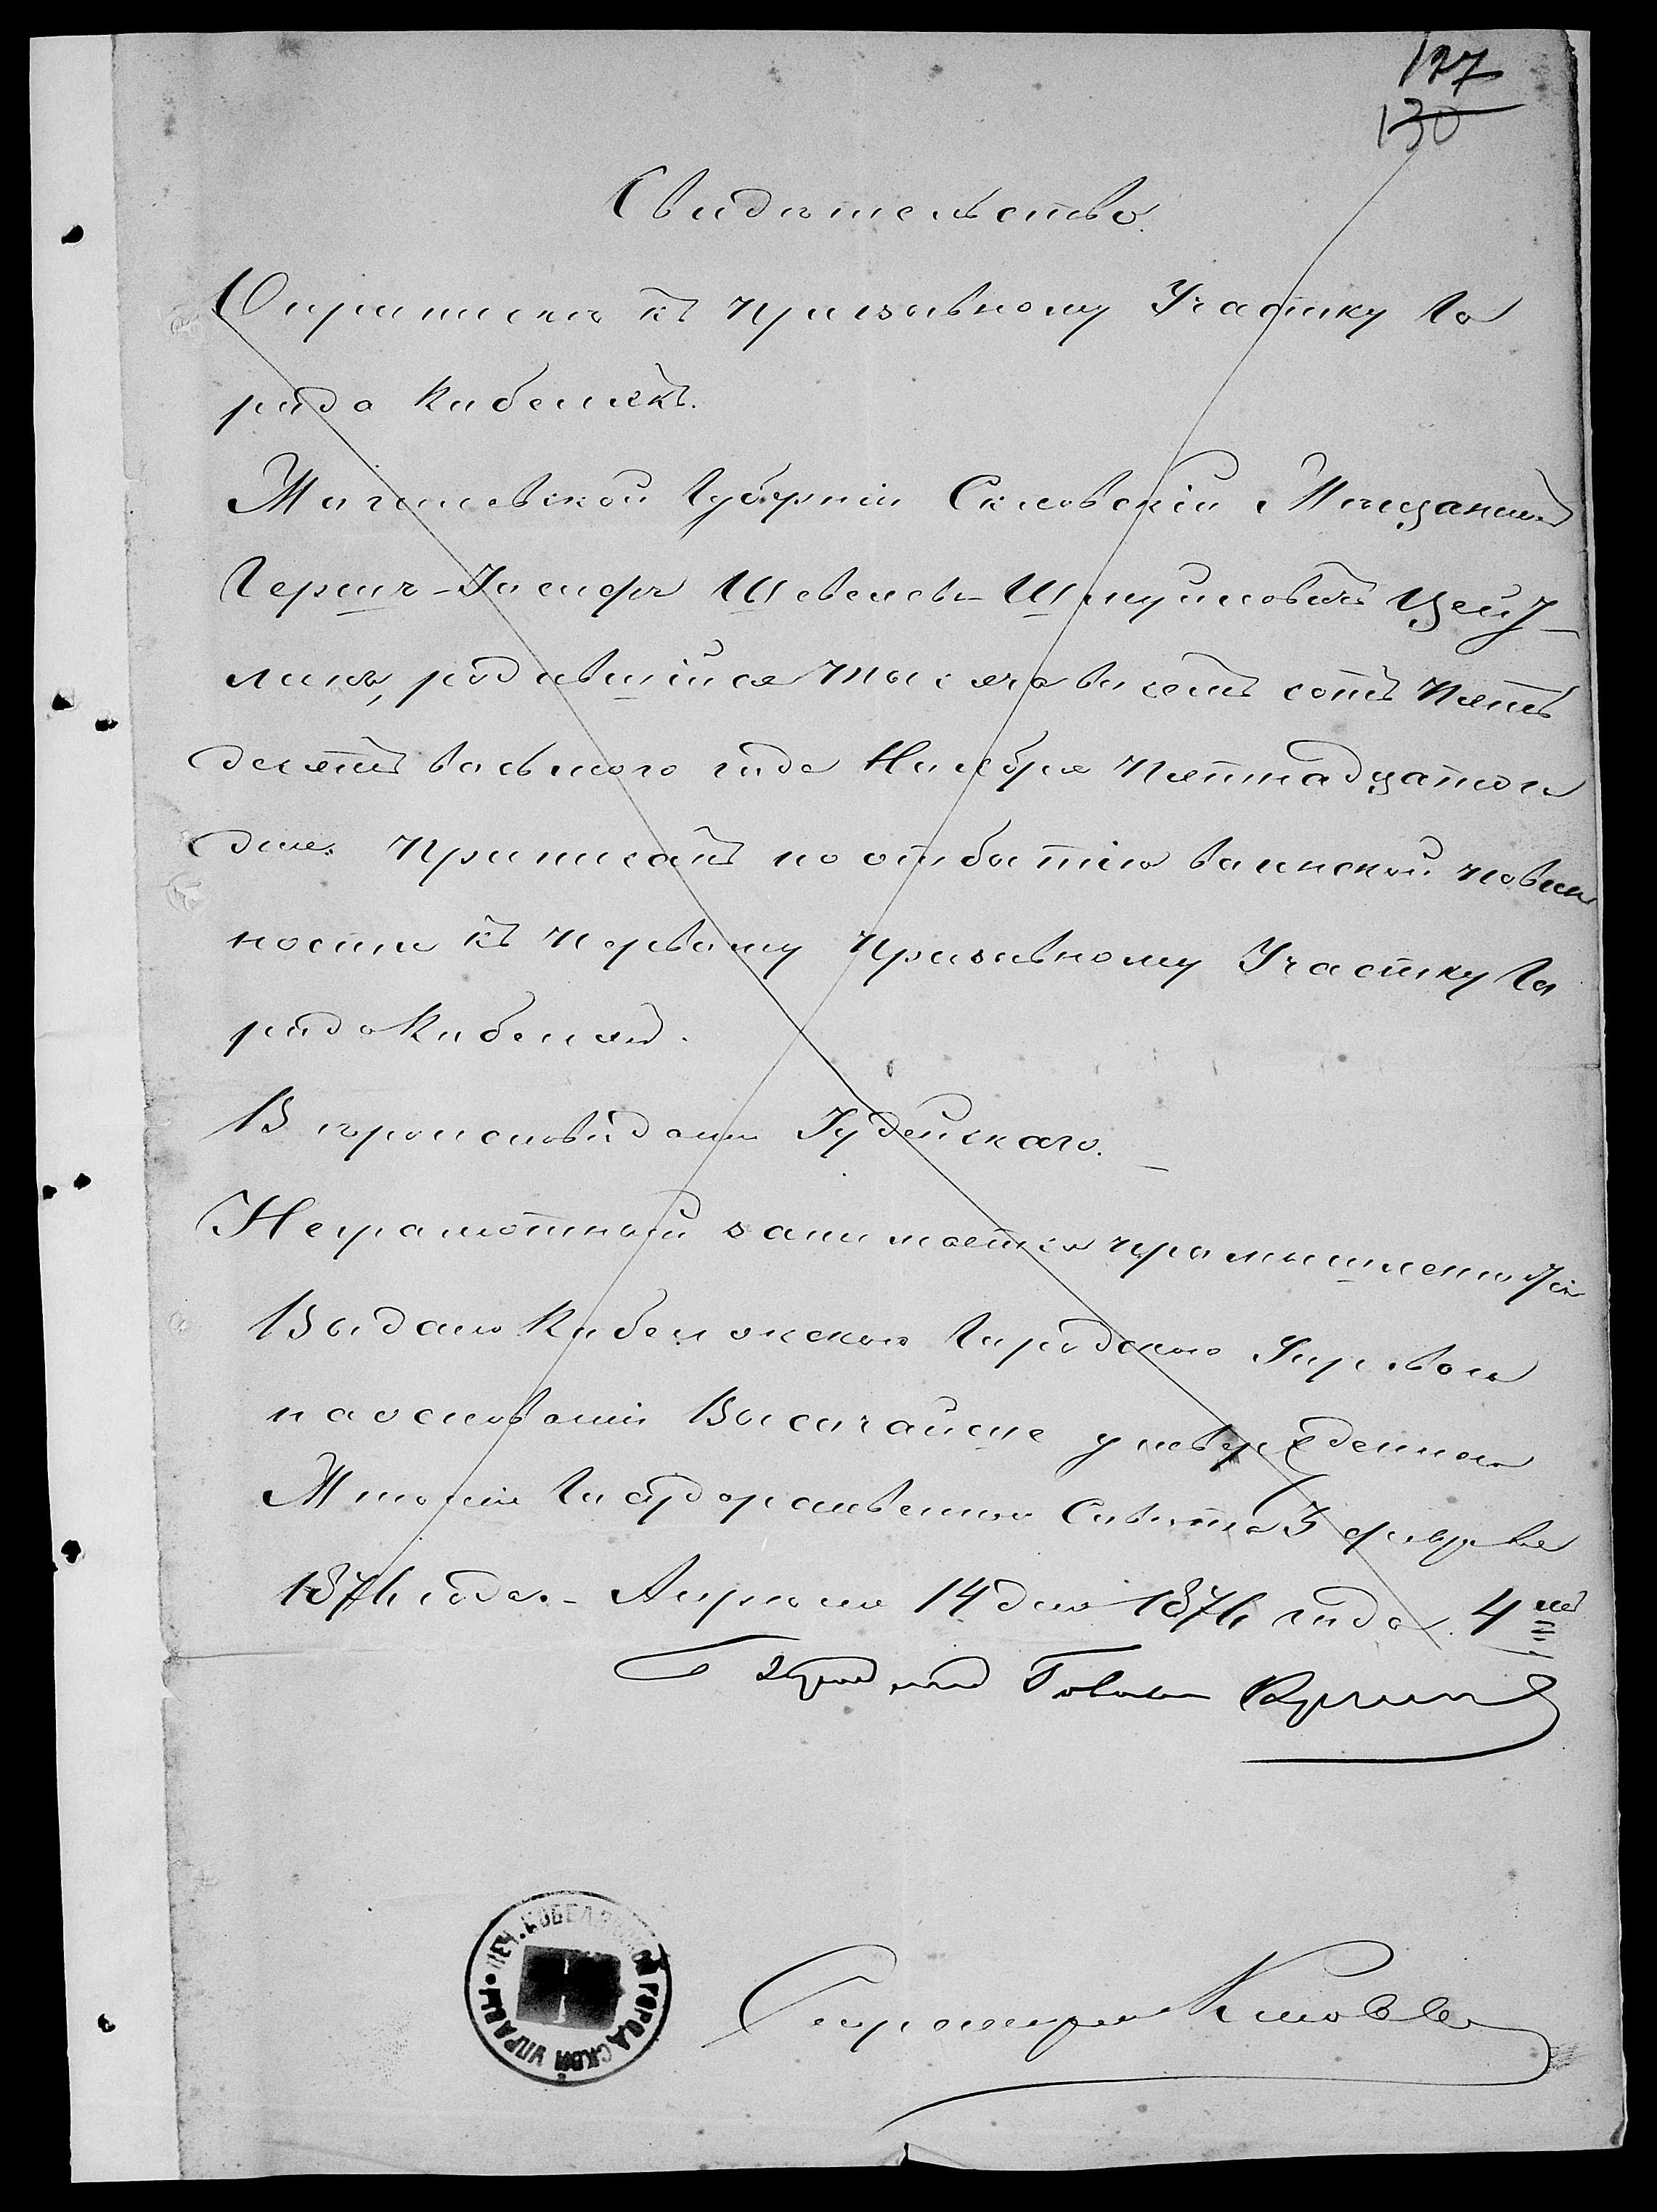 127
130
Свидѣтельство.
О припискѣ къ призывному Участку Го
рода Кобелякъ.
Могилевской Губерніи Скловскій Мѣщанинъ
Гершъ-Іосефъ Шевелевъ-Шмуиловъ Цей
линъ, родившійся тысяча восемь сотъ пять
десятъ восьмого года Ноября пятнадцатого
дня. Приписанъ по отбытію воинской повин
ности къ первому призывному Участку Го
рода Кобелякъ.
Вѣроисповѣданія Іудейскаго.
Неграмотный занимается
Выдано Кобелякскою Городскою Управою
на основаніи Высочайше утвержденнаго
Мнѣнія Государственнаго Совѣта 3 февраля
1876 года. - Апрѣля 14 дня 1876 года.
Городской Голова
ПЕЧ. КОБЕЛЯКСКОЙ ГОРОДСКОЙ УПРАВЫ
Секретарь